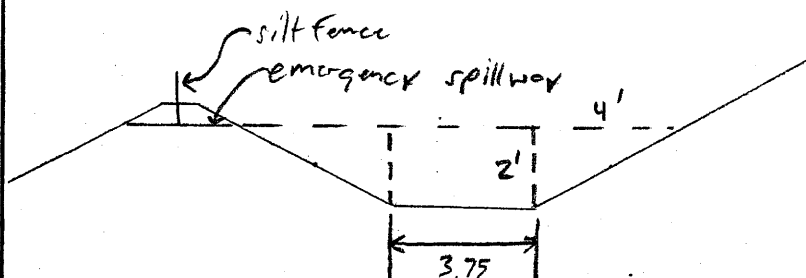 silt fence
emergency spillway
4'
2'
3.75